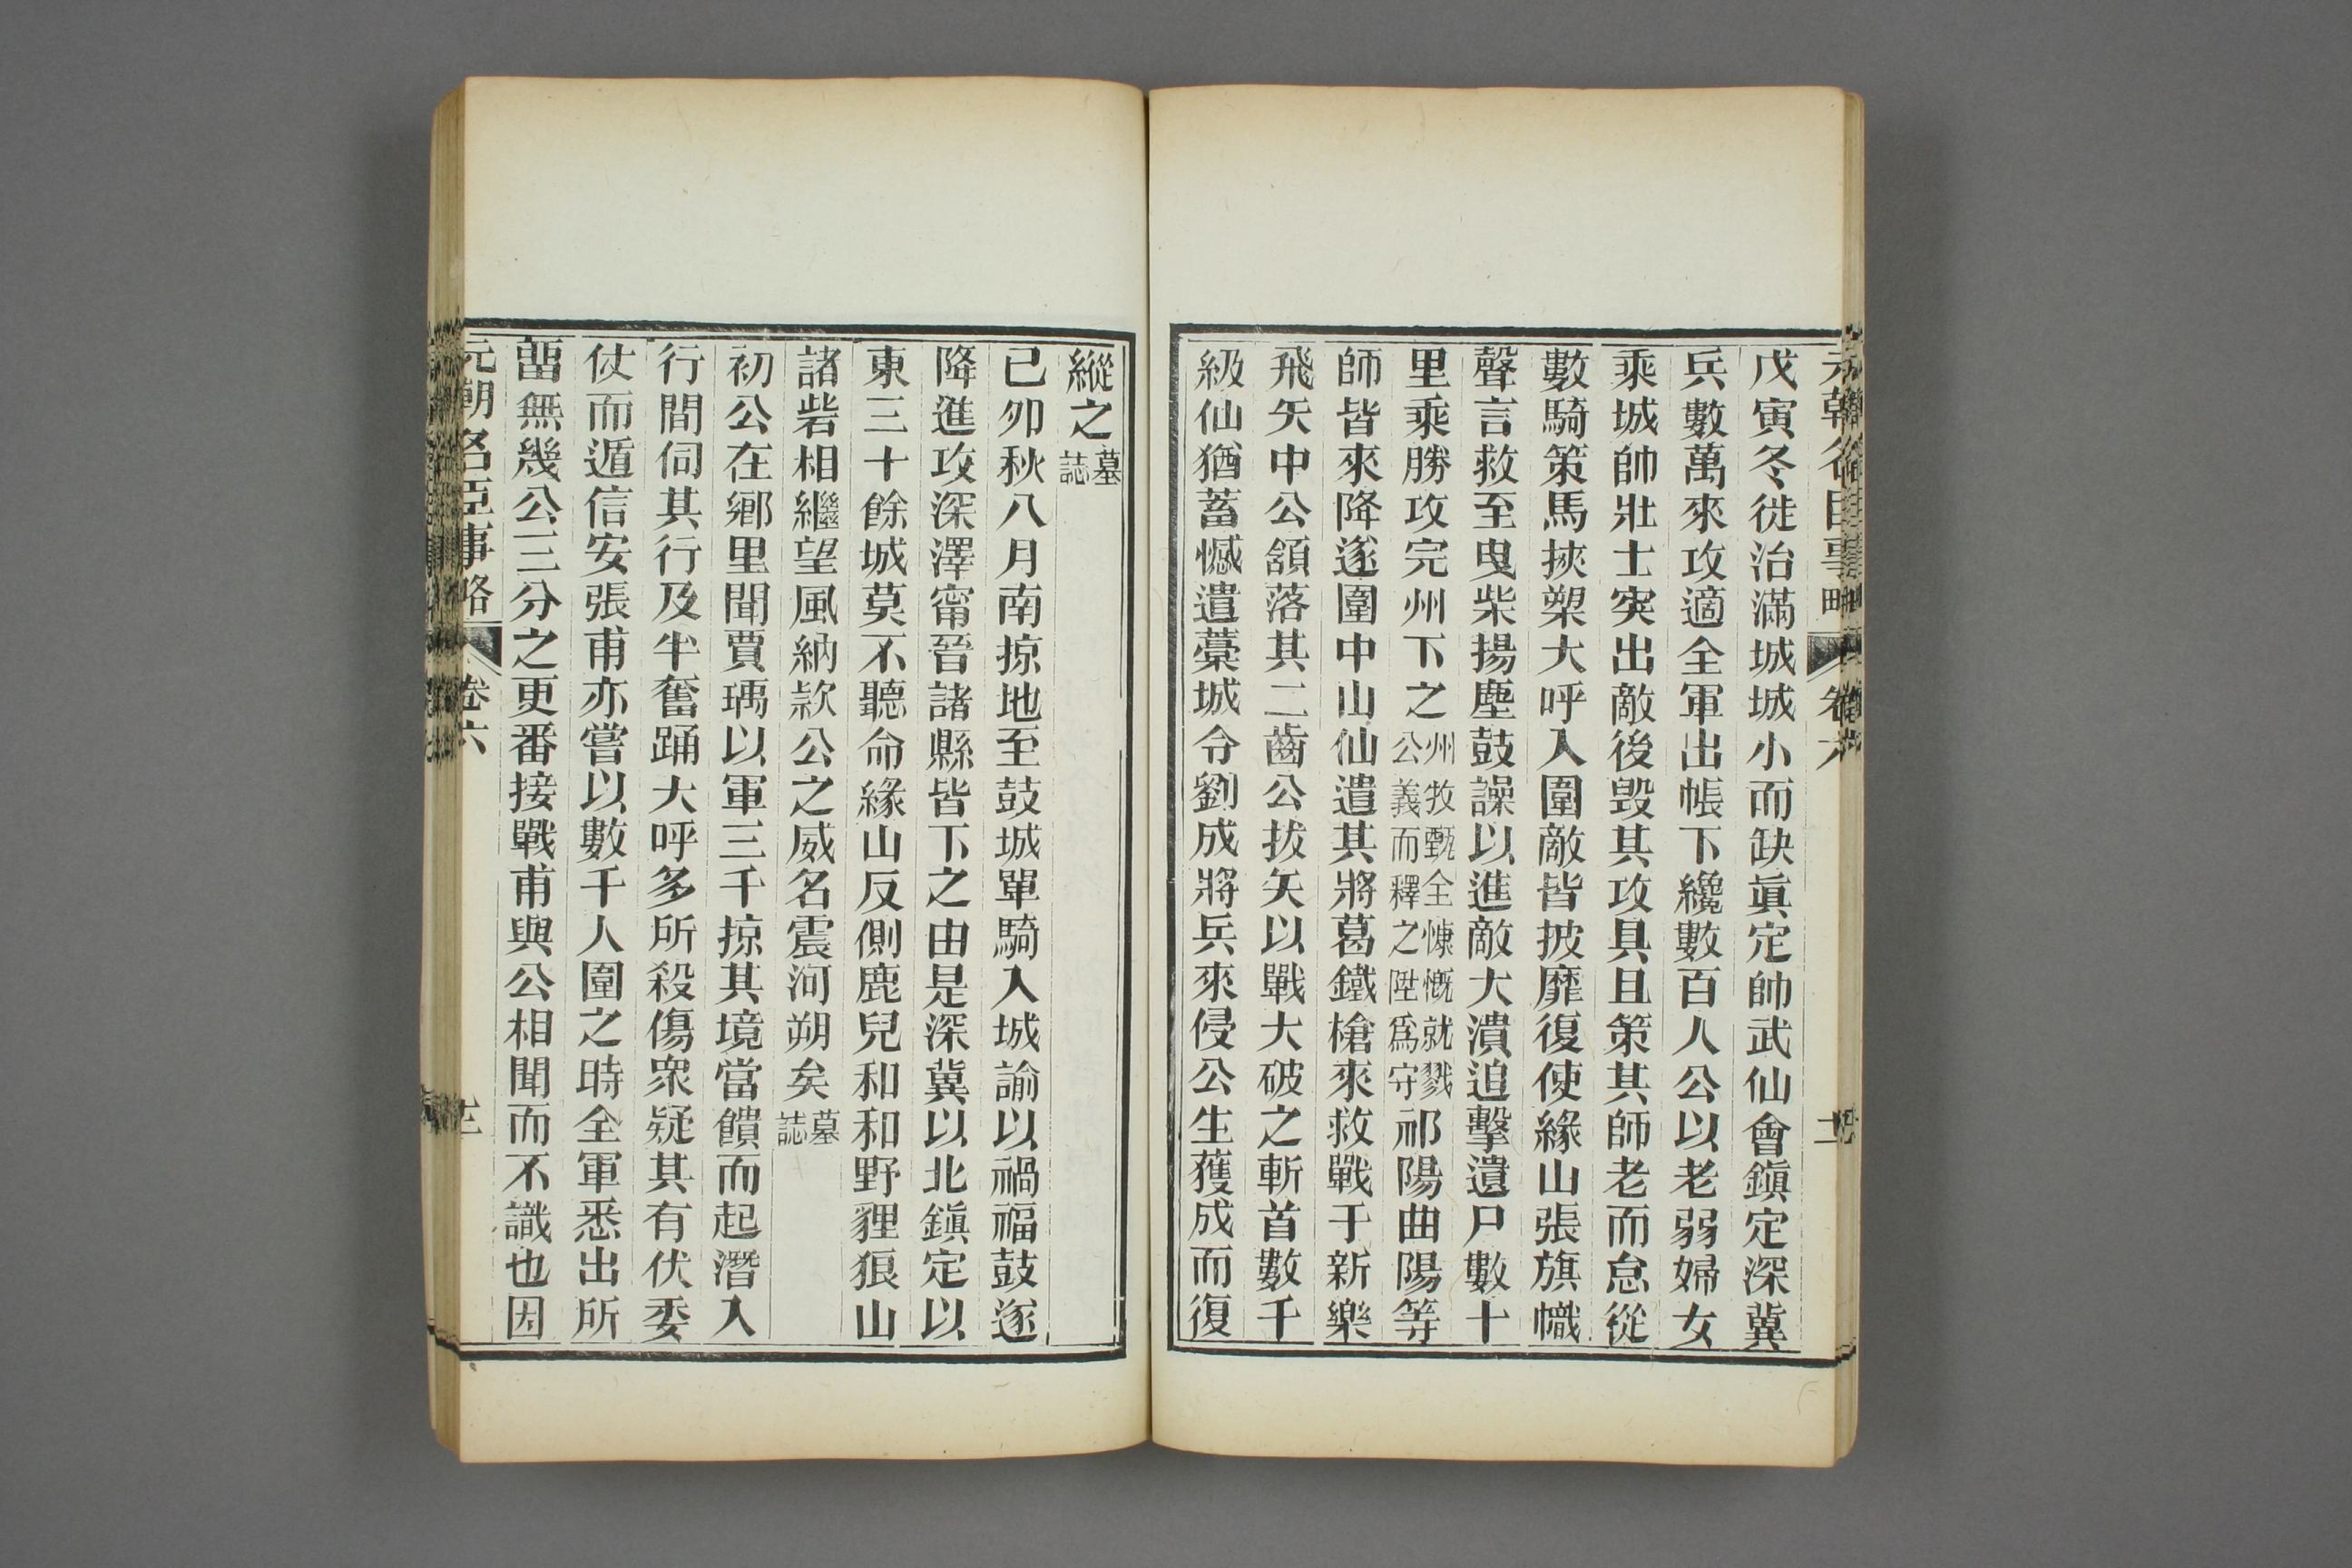 戊寅冬徙治滿城城小而缺眞定帥武仙會鎭定深冀
兵數萬來攻適全軍出帳下纔數百人公以老弱婦女
乘城帥壯士突出敵後毁其攻具且策其師老而怠從
數騎策馬挾槊大呼入圍敵皆披靡復使緣山張旗幟
聲言救至曳柴揚塵鼓譟以進敵大潰追擊遺尸數十
里乘勝攻完州下之州牧甄全慷慨就戮公義而釋之陞爲守祁陽曲陽等
師皆來降遂圍中山仙遣其將葛鐵槍來救戰于新樂
飛矢中公頷落其二齒公拔矢以戰大破之斬首數千
級仙猶蓄憾遣藁城令劉成將兵來侵公生獲成而復
縱之墓誌
已夘秋八月南掠地至鼓城單騎入城諭以禍福鼓遂
降進攻深澤甯晉諸縣皆下之由是深冀以北鎭定以
東三十餘城莫不聽命緣山反側鹿兒和和野貍狼山
諸砦相繼望風納欵公之威名震河朔矣墓誌
初公在鄉里聞賈瑀以軍三千掠其境當饋而起潛入
行間伺其行及半奮踊大呼多所殺傷衆疑其有伏委
仗而遁信安張甫亦嘗以數千人圍之時全軍悉出所
畱無幾公三分之更番接戰甫與公相聞而不識也因
元朝名臣事略
卷六